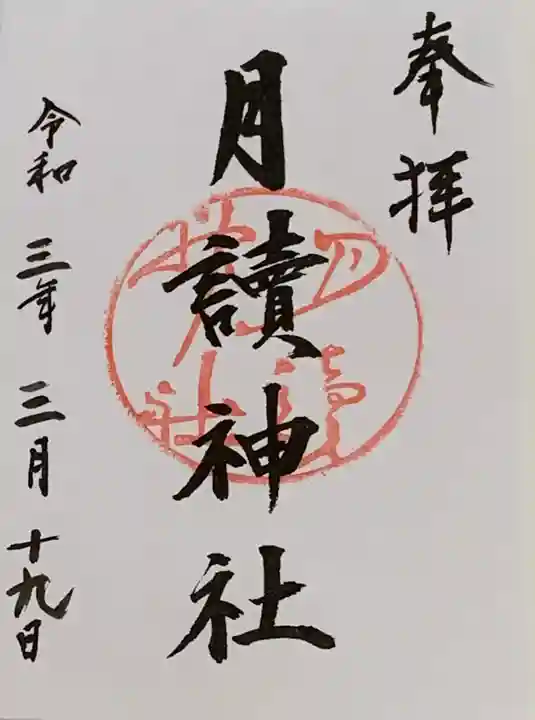 奉拝
月讀神社
令和三年三月十九日